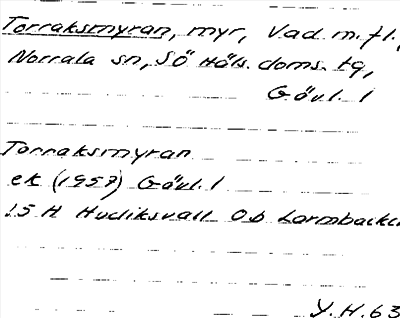 Torraksmyran, myr, Vad m.fl.,
Norrala sn, SÖ Häls. doms. tg,
Gävl. l
Torraksmyran
ek (1957) Gävl. l
15 H Hudiksvall 0b Larmbackk.
Y.H. 63